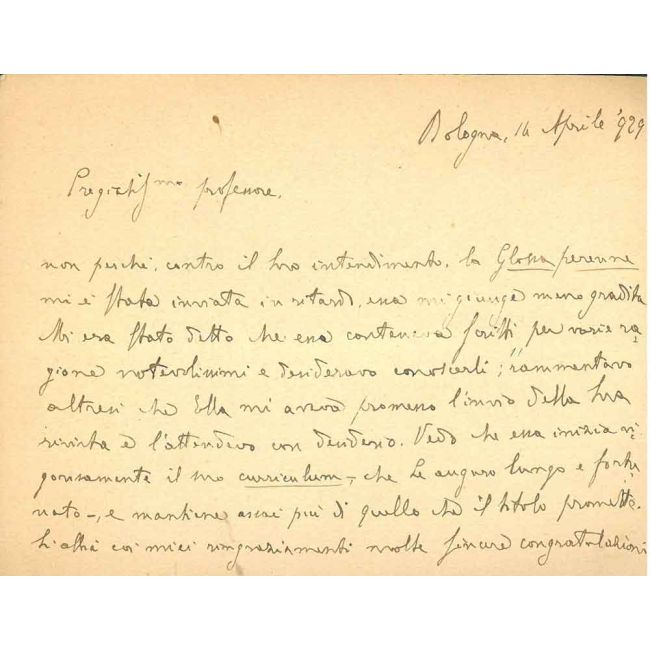 Bologna, 14 Aprile '929
Pregiatiss.mo professore,
non perché, contro il Suo intendimento, la Glossa perenne
mi è stata inviata in ritardo, essa mi giunge meno gradita
Mi era stato detto che essa conteneva scritti per varie ra-
gione notevolissimi e desideravo conoscerli; rammentavo
altresì che Ella mi aveva promesso l'invio della Sua
rivista e l'attendevo con desiderio. Vedo che essa inizia vi-
gorosamente il suo curriculum –, che Le auguro lungo e fortu-
nato –, e mantiene assai più di quello che il titolo promette.
Si abbia coi miei ringraziamenti molte sincere congratulazioni